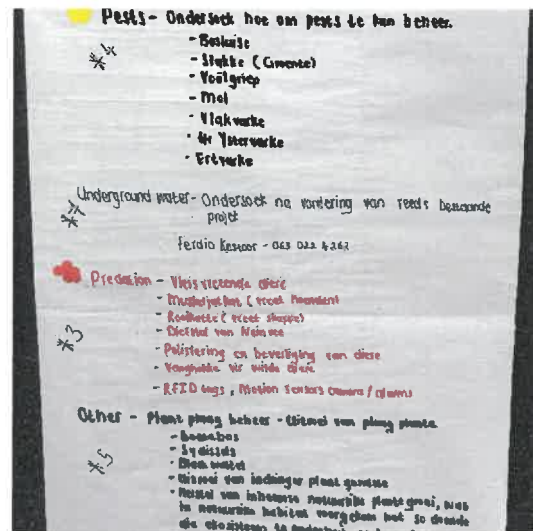 Pests - Ondersoek hoe om pests te kan beheer.
- Bosluise
- Slakke (Gemeente)
- Voëlgriep
- Mol
- Vlakvarke
- Ystervarke
- Erdvarke
*4
Underground water - Ondersoek na vordering van reeds bestaande
projek
Ferdio - 063 022 4262
Predation - Vleis vretende diere
- (vreet hoenders)
- Rooikatte (vreet skape)
- Diefstal van kleinvee
- Polistering en beveiliging van diere
- Vanghokke vir wilde diere
- RFID tags, Motion Sensors camera / alarms
*3
Other - Plant plaag beheer - Uitroei van plaag plante
*5
- Litjiesdis
- Uitroei van indringer plant
- Herstel van inheemse natuurlike plantegroei, was
in natuurlike habitat voorgekom het so draand
die ekosisteem